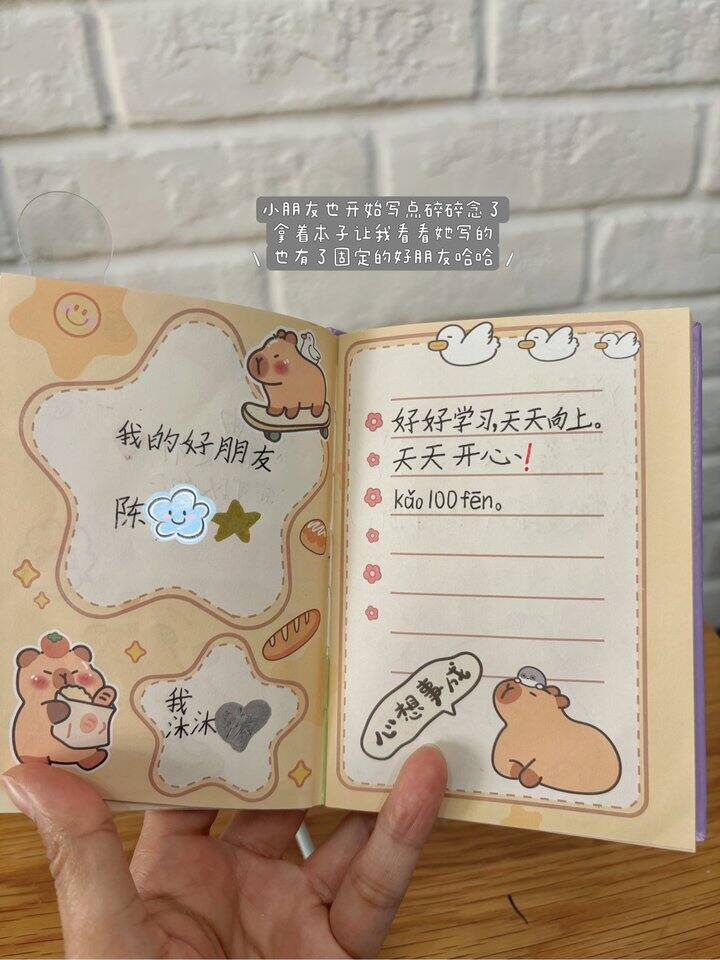 小朋友也开始写点碎碎念了
拿着本子让我看看她写的
\ 也有了固定的好朋友哈哈 /
我的好朋友
陈
我
沐沐
好好学习,天天向上。
天天开心!
kǎo 100 fēn。
心想事成